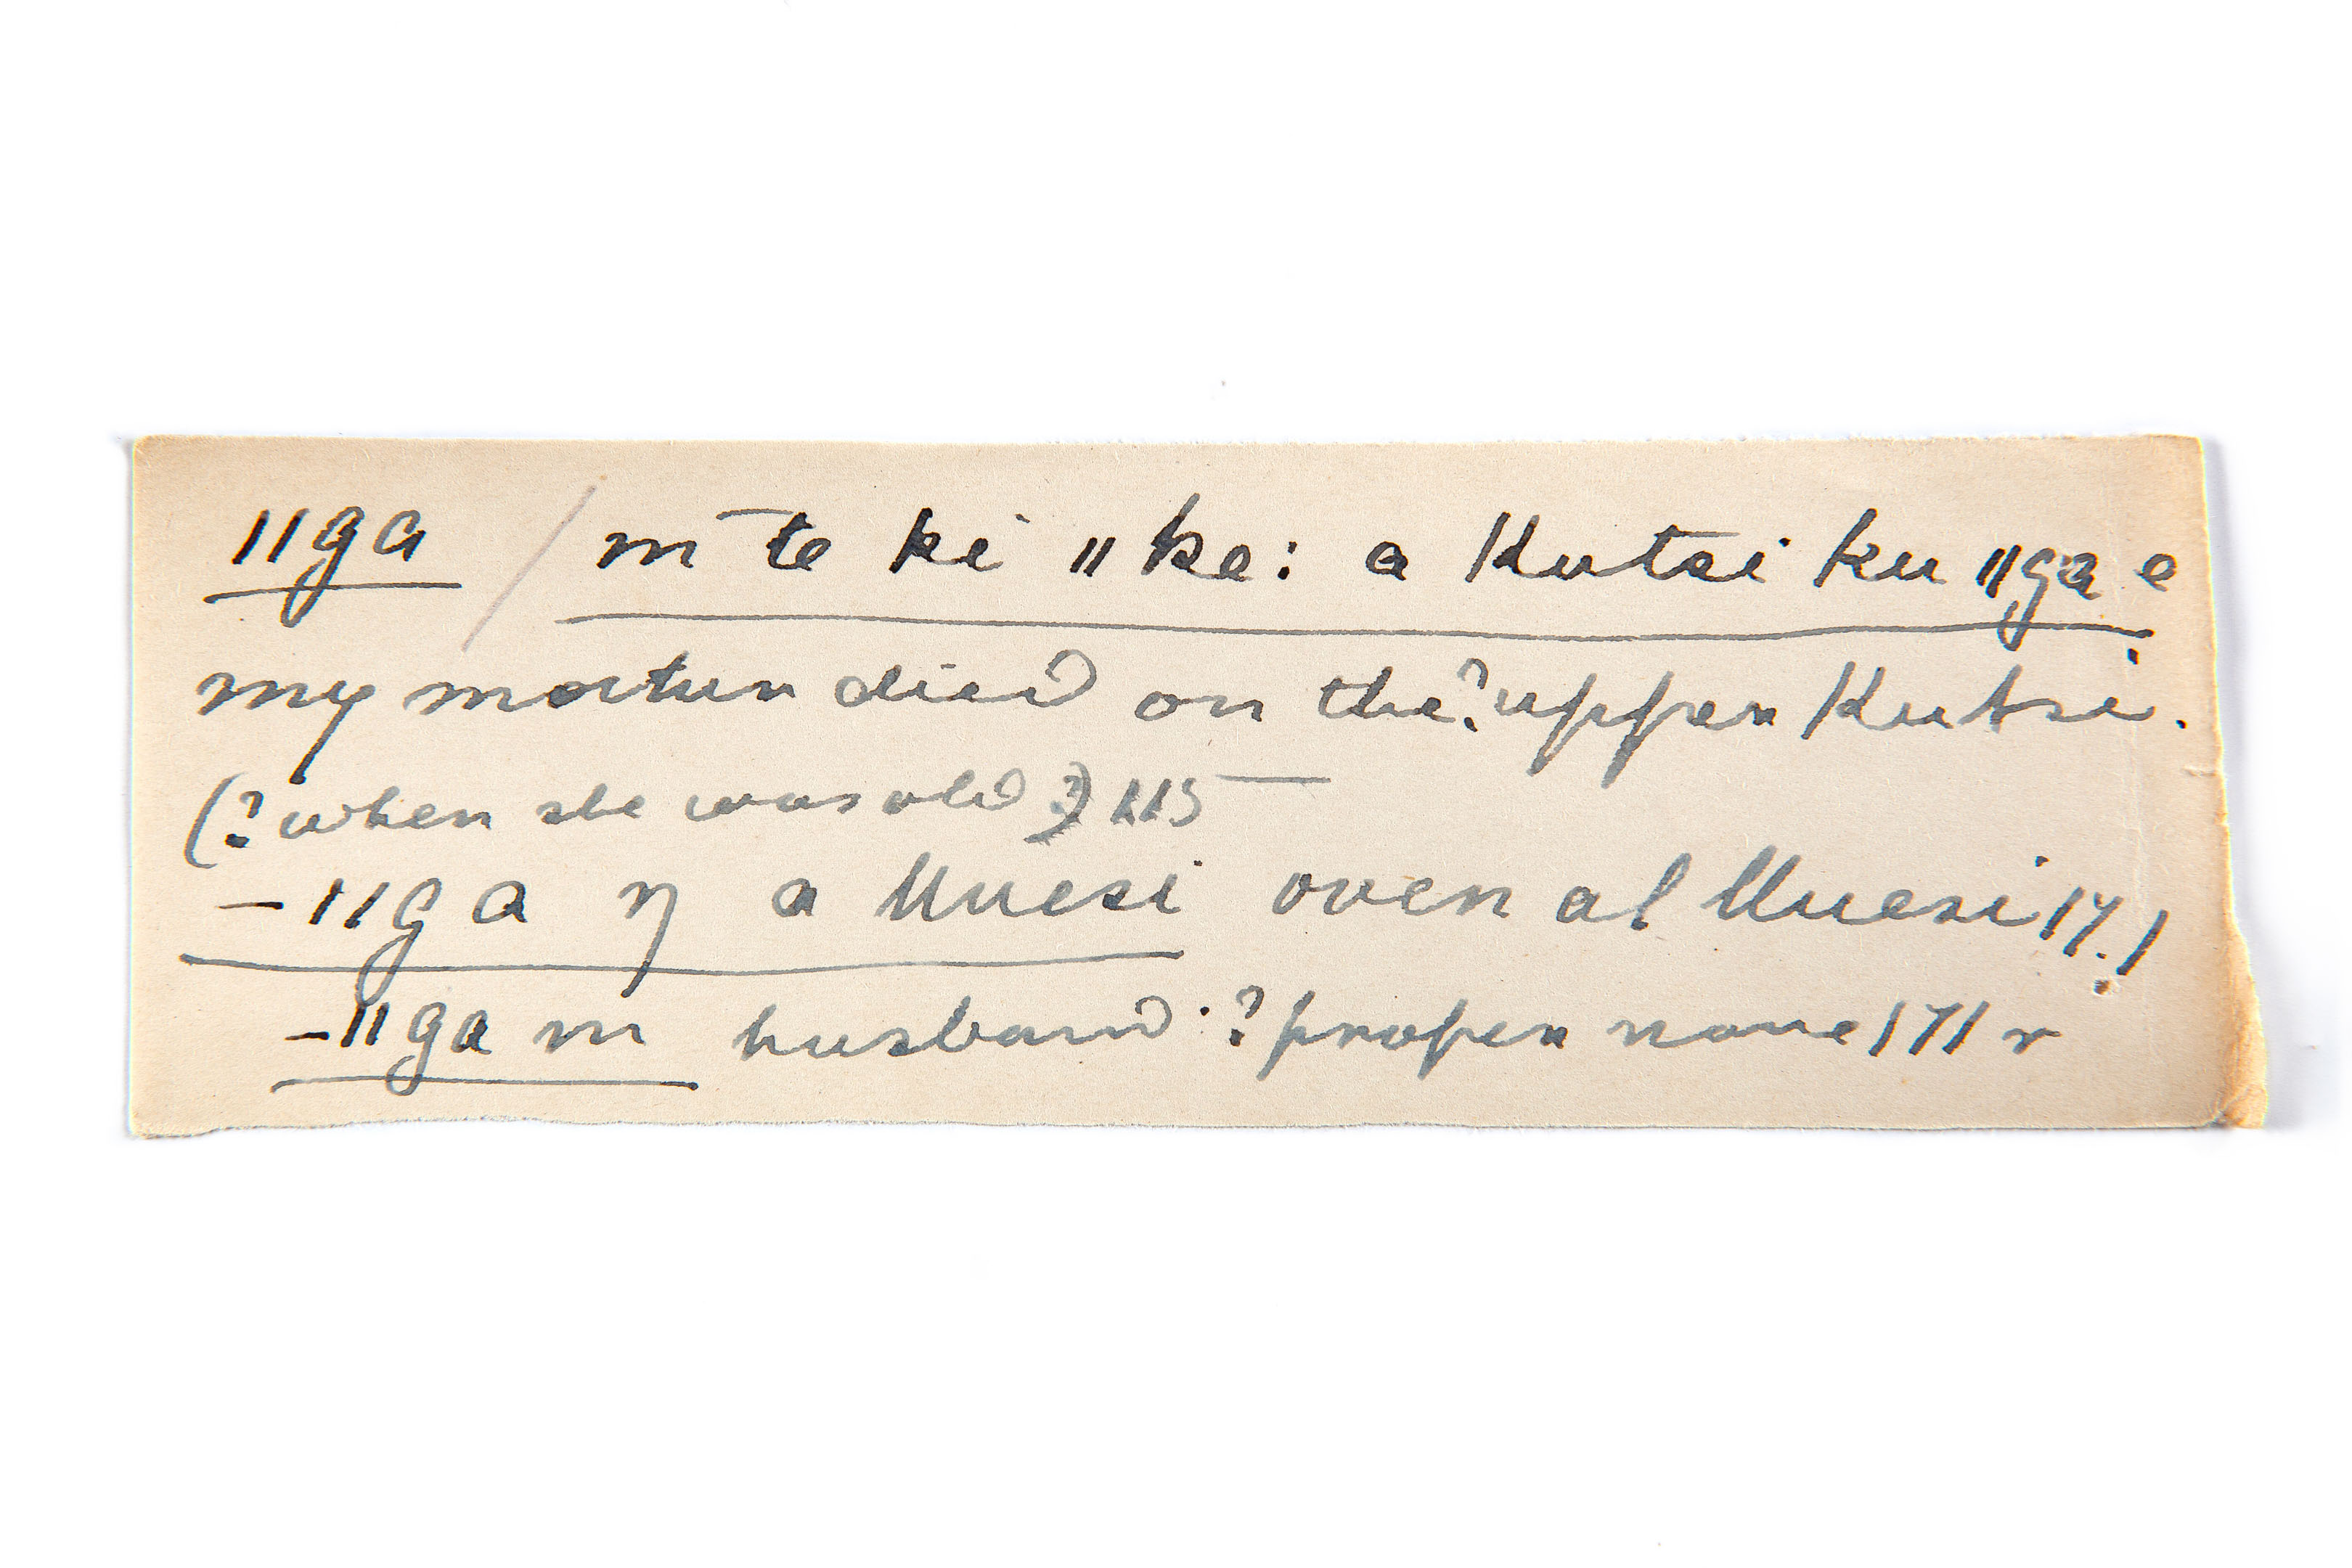 ǁga / m̄ te ki ǁke: a Kutsi ku ǁga e
my mother died on the ? upper Kutsi.
(? when she was old ?) 115
– ǁga ŋ a Nuesi over al Nuesi 17.1
– ǁga m husband. ? proper name 171 r